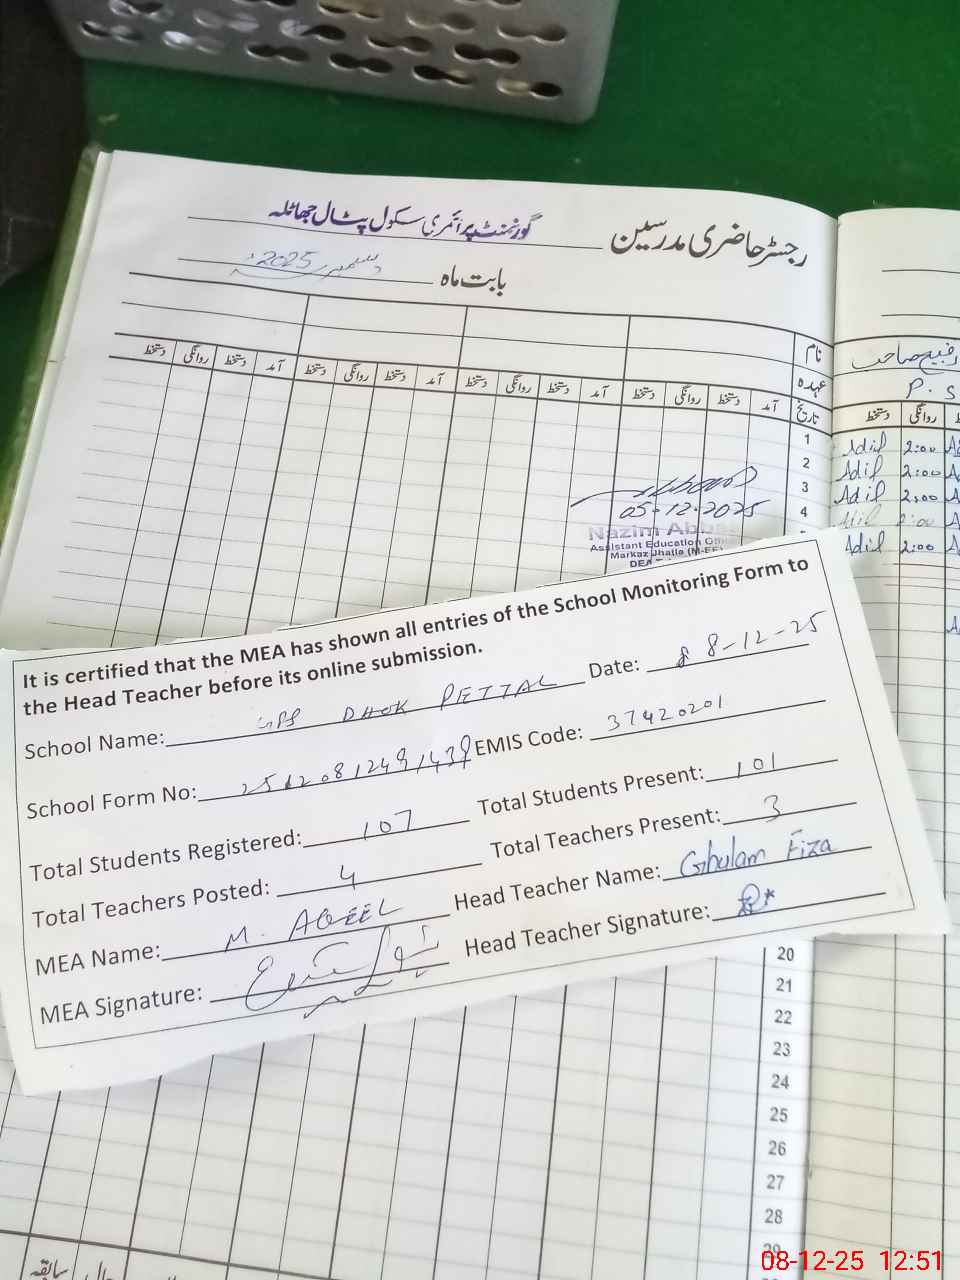 رجسٹر حاضری مدرسین گورنمنٹ پرائمری سکول پٹال جھاٹلہ
بابت ماہ دسمبر 2025ء
نام
عہدہ
تاریخ آمد دستخط روانگی دستخط آمد دستخط روانگی دستخط آمد دستخط روانگی دستخط آمد دستخط روانگی دستخط
P.S
دستخط روانگی
1 Adil 2:00
2 Adil 2:00
3 Adil 2:00
4 2:00
Adil 2:00
05-12-2025
Nazim Abbas
Assistant Education
Markaz Jhatla (M-EE)
It is certified that the MEA has shown all entries of the School Monitoring Form to
the Head Teacher before its online submission.
School Name: GPS DHOK PETTAL Date: 8-12-25
School Form No: EMIS Code: 37420201
Total Students Registered: 107 Total Students Present: 101
Total Teachers Posted: 4 Total Teachers Present: 3
MEA Name: M. AQEEL Head Teacher Name: Ghulam Fiza
MEA Signature: Head Teacher Signature:
20
21
22
23
24
25
26
27
28
29
سابقہ
08-12-25 12:51